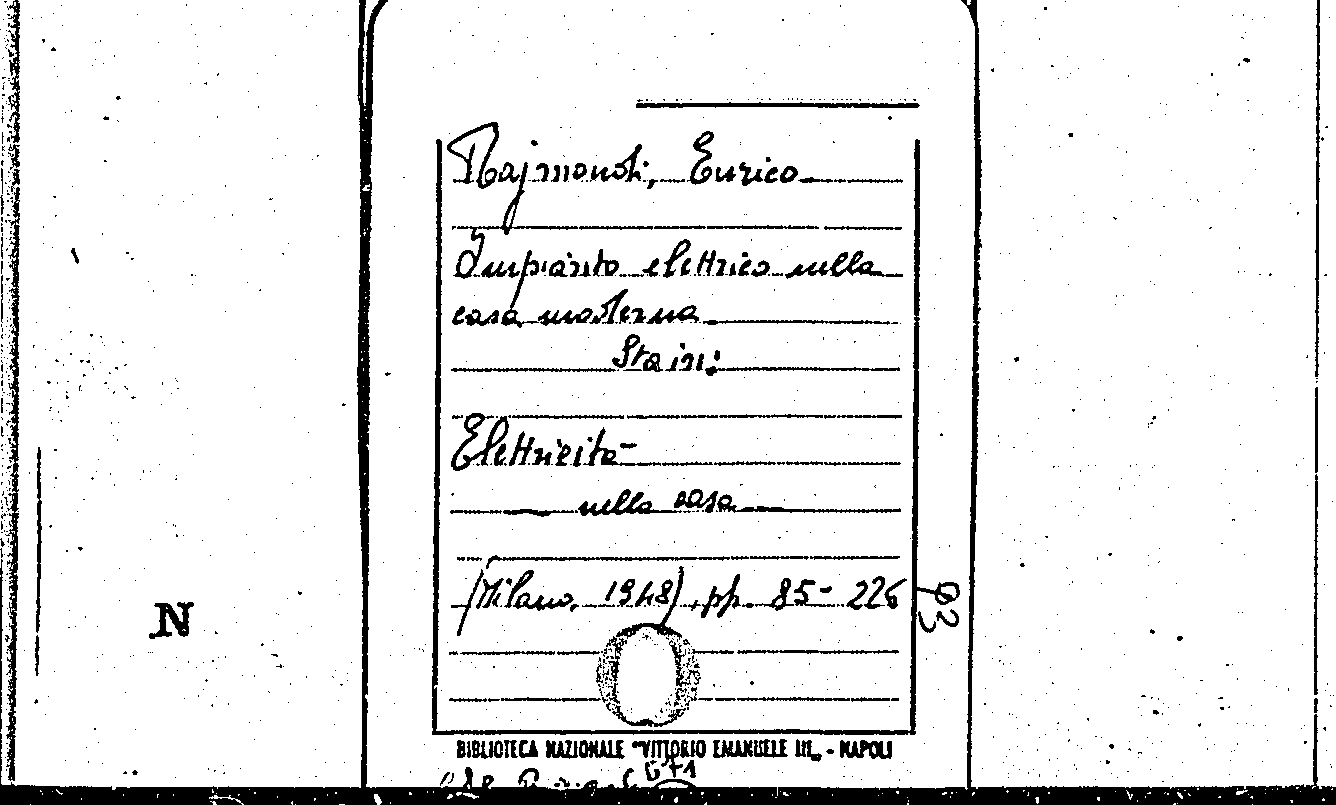 Rajmondi, Enrico
Impianto elettrico nella
casa moderna.
Sta in:
Elettricità
nella casa
(Milano, 1948), pp. 85-226
93
N
BIBLIOTECA NAZIONALE "VITTORIO EMANUELE III„ - NAPOLI